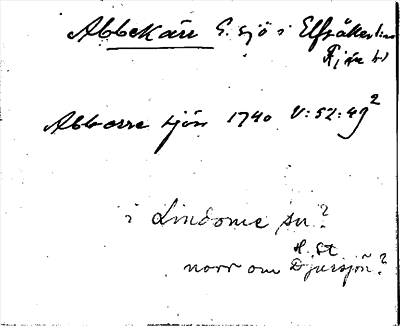 Abbekärr S. sjö i Elfsåker
Fjäre hd
Abborre tjörn 1740 V:52:49²
i Lindome sn?
H. St
norr om Djursjön?